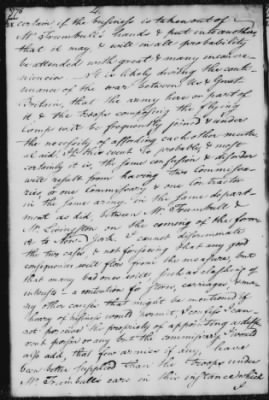 4
certain if the business is taken out of
Mr Trumbull's hands & put into another,
that it may, & will in all probability
be attended with great & many inconve-
niencies. It is likely during the conti-
nuance of the war between us & Great
Britain, that the army here or part of
it & the troops composing the flying
Camp will be frequently joined & under
the necessity of affording each other mutu-
al aid. If this event is probable, & most
certainly it is, the same confusion & disorder
will result from having two Commissa-
ries, or one Commissary & one Contractor
in the same army, in the same depart-
ment as did, between Mr Trumbull &
Mr Livingston on the coming of the former
to New York. I cannot discriminate
the two cases, & not foreseeing that any good
consequences will flow from the measure, but
that many bad ones will, such as clashing of
interests, a contention for stores, carriages, & ma-
ny other causes that might be mentioned if
hurry of business would permit, I confess I can-
not perceive the propriety of appointing a diffe-
rent person or any but the commissary. I would
also add, that few armies if any, have
been better supplied than the troops under
Mr Trumbull's care in this instance which
I